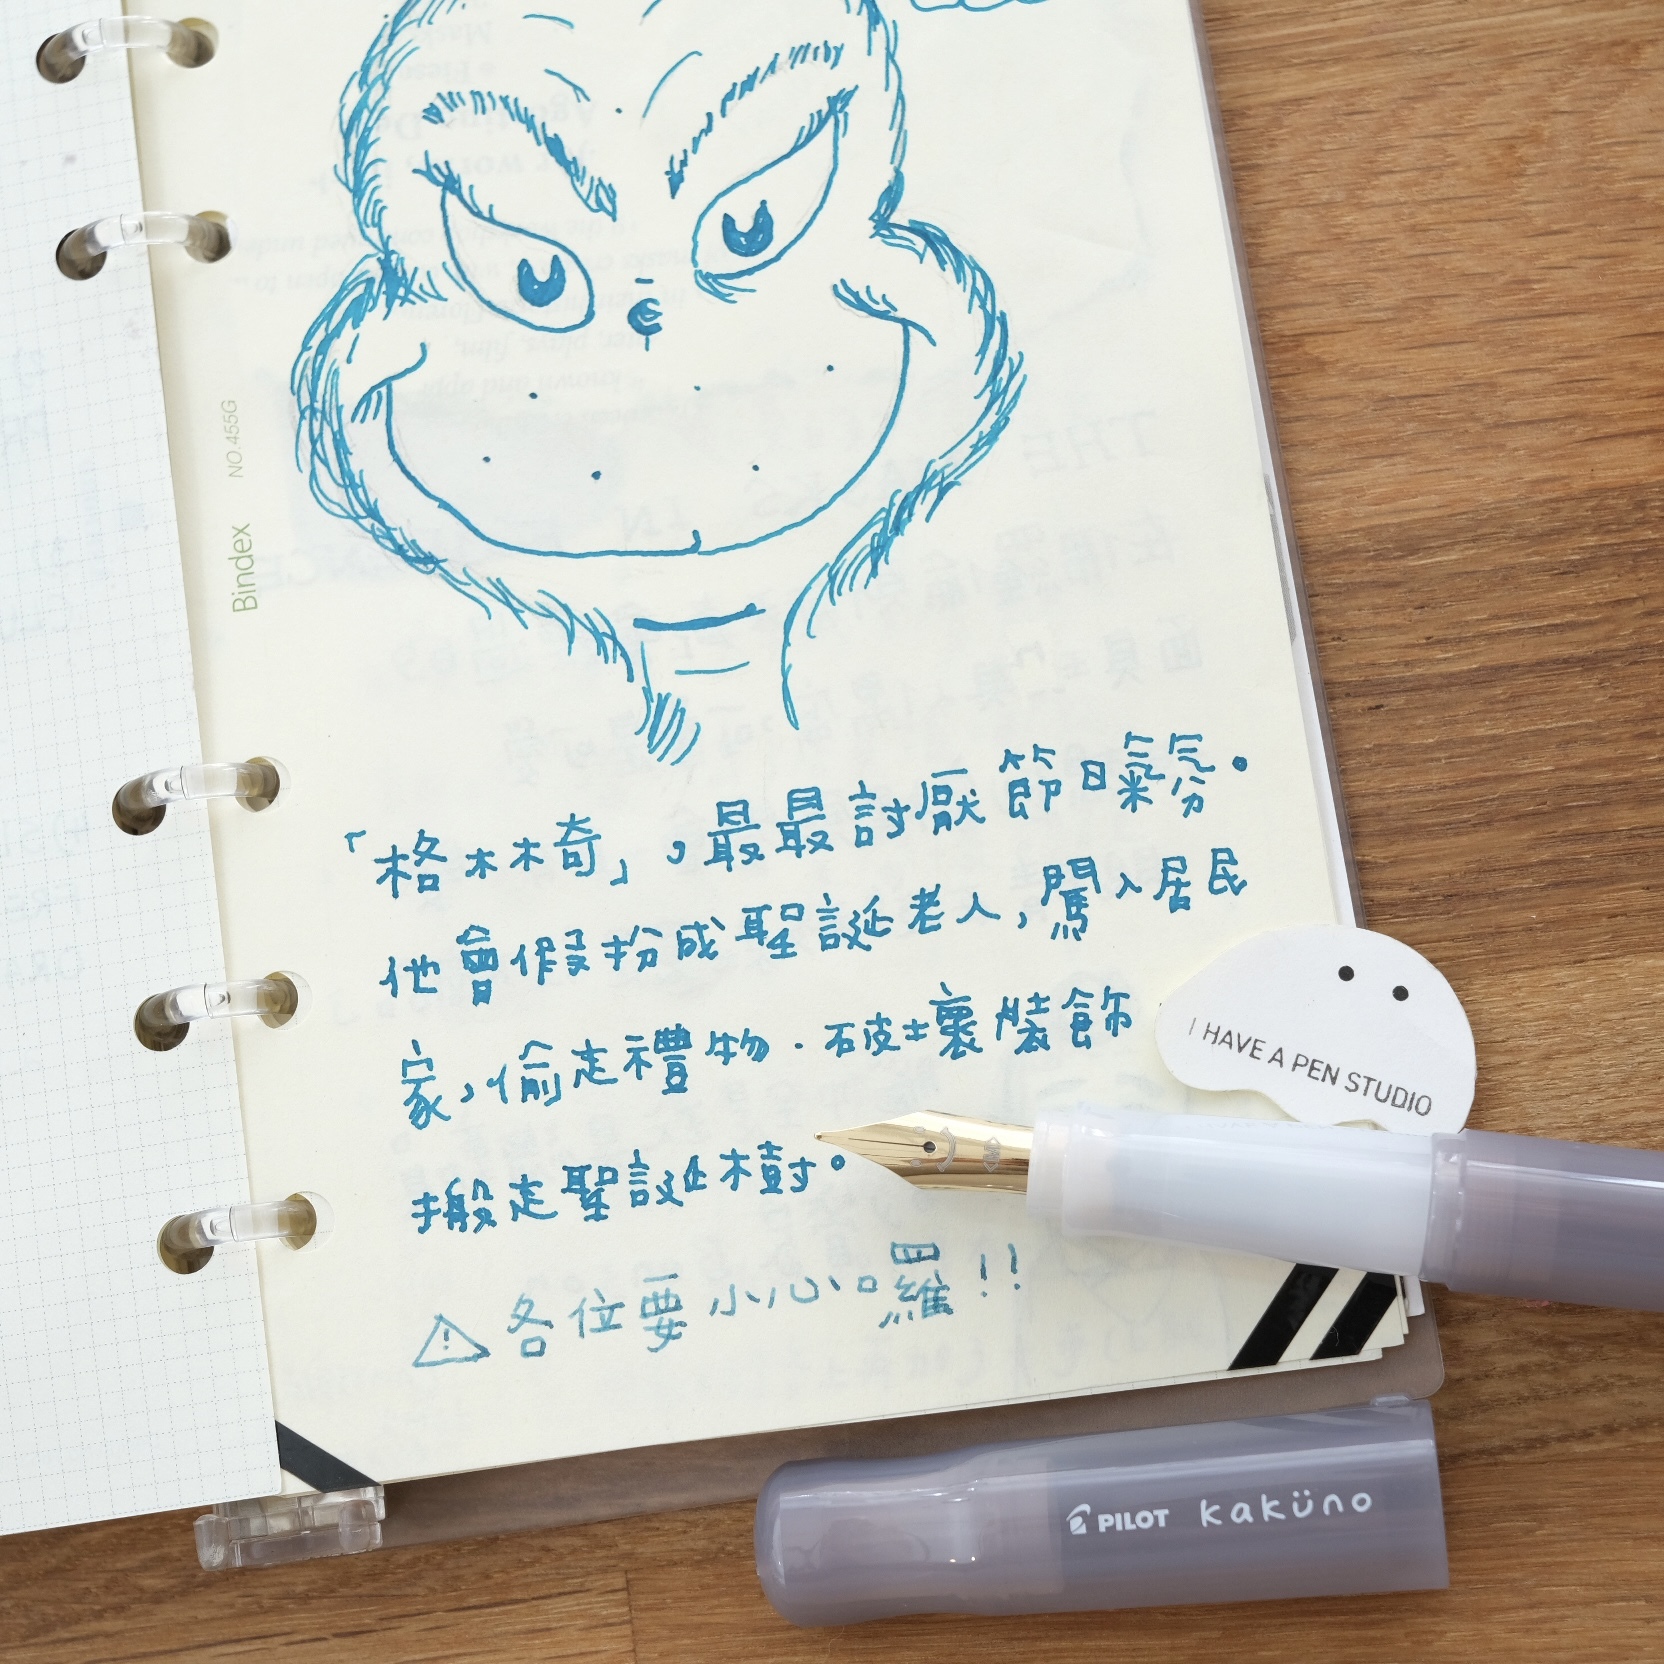 「格林奇」，最最討厭節日氣氛。
他會假扮成聖誕老人，闖入居民
家，偷走禮物．破壞裝飾
搬走聖誕樹。
⚠各位要小心囉！！
Bindex NO.455G
I HAVE A PEN STUDIO
M
PILOT kaküno